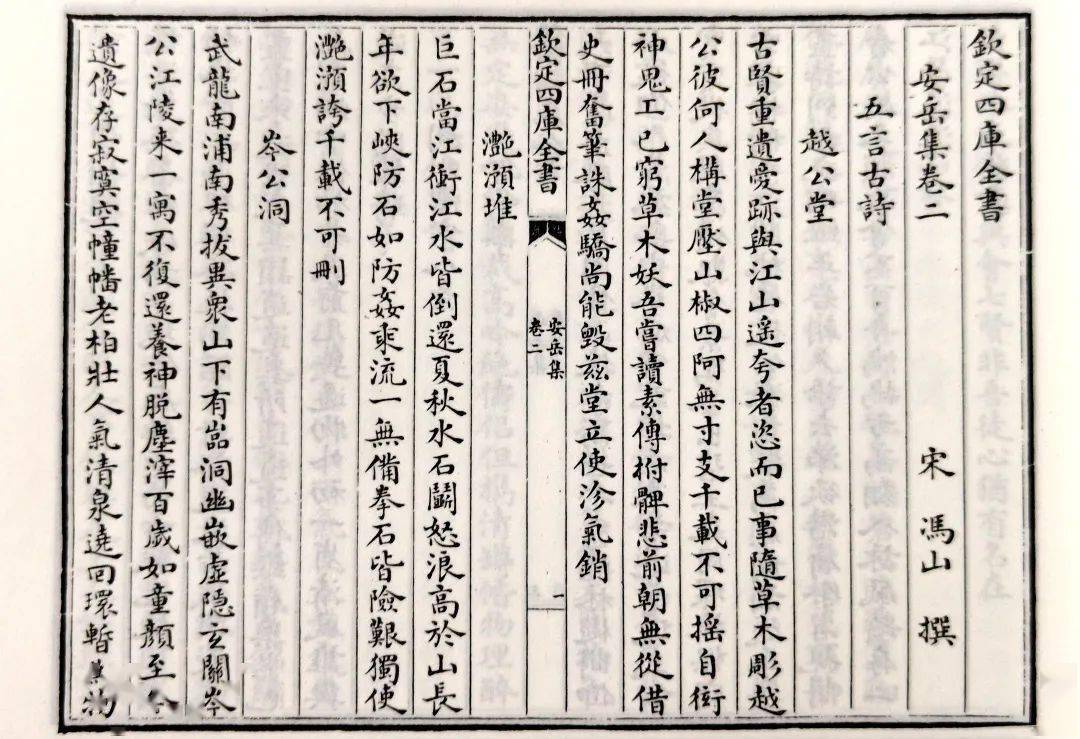 欽定四庫全書
安岳集卷二
宋 馮山 撰
五言古詩
越公堂
古賢重遺愛跡與江山遥夸者恣而已事隨草木彫越
公彼何人構堂壓山椒四阿無寸支千載不可搖自衒
神鬼工已窮草木妖吾嘗讀素傳拊髀悲前朝無從借
史冊奮筆誅姦驕尚能毀兹堂立使沴氣銷
欽定四庫全書
安岳集
卷二
一
灔澦堆
巨石當江衝江水皆倒還夏秋水石鬭怒浪高於山長
年欲下峽防石如防姦乘流一無備拳石皆險艱獨使
灔澦誇千載不可刪
岑公洞
武龍南浦南秀拔異衆山下有嵓洞幽嵌虚隱玄關岑
公江陵来一寓不復還養神脱塵滓百歲如童顔至今
遺像存寂寞空幢幡老柏壯人氣清泉遶回環暫